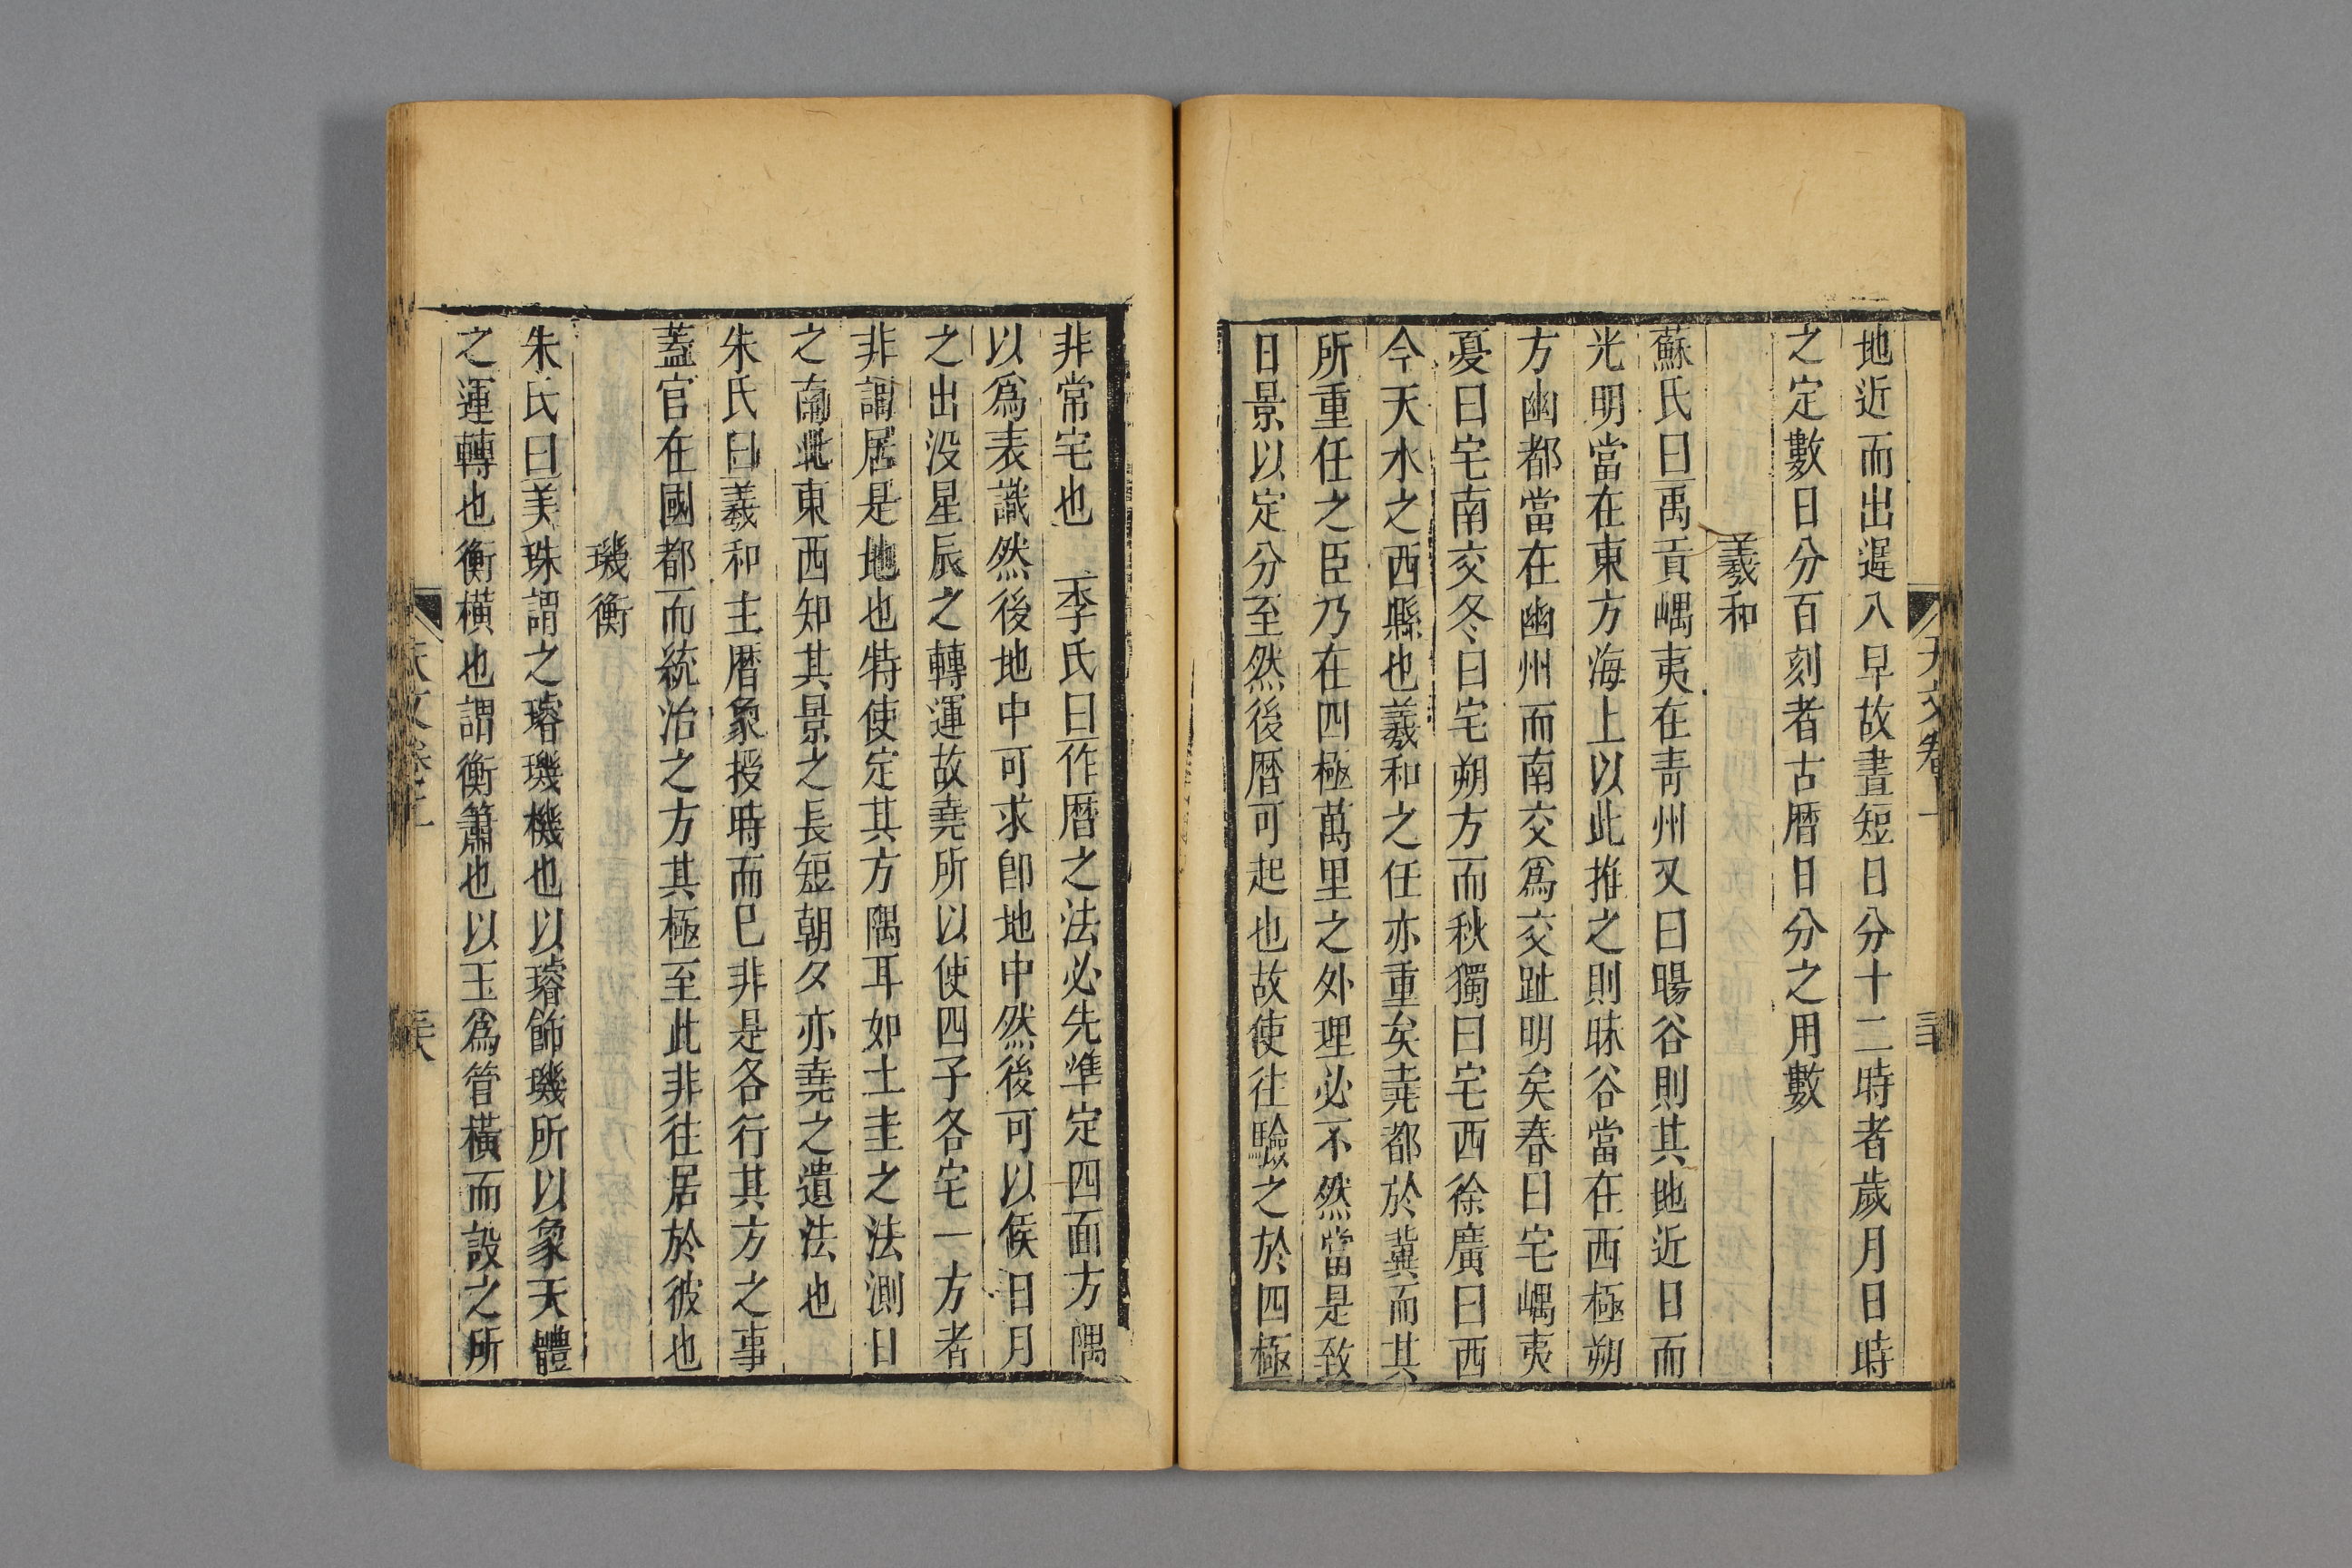 地近而出遲入早故晝短日分十二時者歲月日時
之定數日分百刻者古曆日分之用數
羲和
蘇氏曰禹貢嵎夷在青州又曰暘谷則其地近日而
光明當在東方海上以此推之則昧谷當在西極朔
方幽都當在幽州而南交爲交趾明矣春曰宅嵎夷
憂曰宅南交冬曰宅朔方而秋獨曰宅西徐廣曰西
今天水之西縣也羲和之任亦重矣堯都於冀而其
所重任之臣乃在四極萬里之外理必不然當是致
日景以定分至然後曆可起也故使往驗之於四極
非常宅也 李氏曰作曆之法必先準定四面方隅
以爲表識然後地中可求卽地中然後可以候日月
之出没星辰之轉運故堯所以使四子各宅一方者
非謂居是地也特使定其方隅耳如土圭之法測日
之南北東西知其景之長短朝夕亦堯之遺法也
朱氏曰羲和主曆象授時而已非是各行其方之事
蓋官在國都而統治之方其極至此非往居於彼也
璣衡
朱氏曰美珠謂之璿璣機也以璿飾璣所以象天體
之運轉也衡橫也謂衡簫也以玉爲管橫而設之所